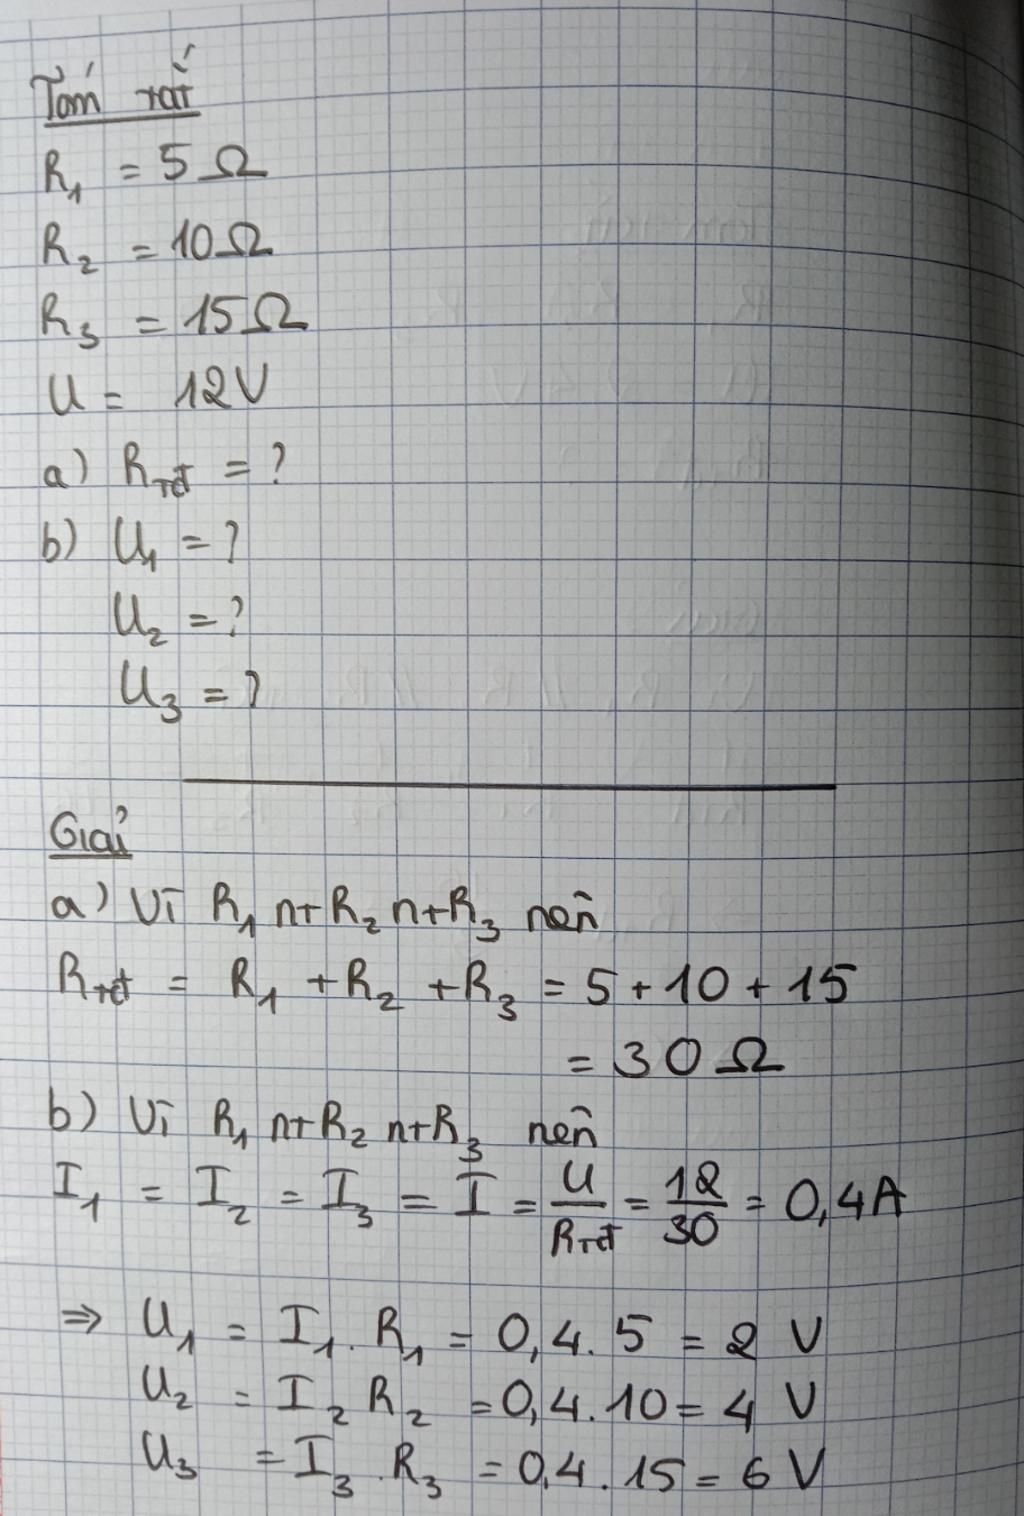 Tóm tắt
R₁ = 5 Ω
R₂ = 10 Ω
R₃ = 15 Ω
U = 12V
a) Rtđ = ?
b) U₁ = ?
U₂ = ?
U₃ = ?
Giải
a) Vì R₁ nt R₂ nt R₃ nên
Rtđ = R₁ + R₂ + R₃ = 5 + 10 + 15
= 30 Ω
b) Vì R₁ nt R₂ nt R₃ nên
I₁ = I₂ = I₃ = I = U/Rtđ = 12/30 = 0,4A
⇒ U₁ = I₁ . R₁ = 0,4 . 5 = 2 V
U₂ = I₂ R₂ = 0,4 . 10 = 4 V
U₃ = I₃ . R₃ = 0,4 . 15 = 6 V